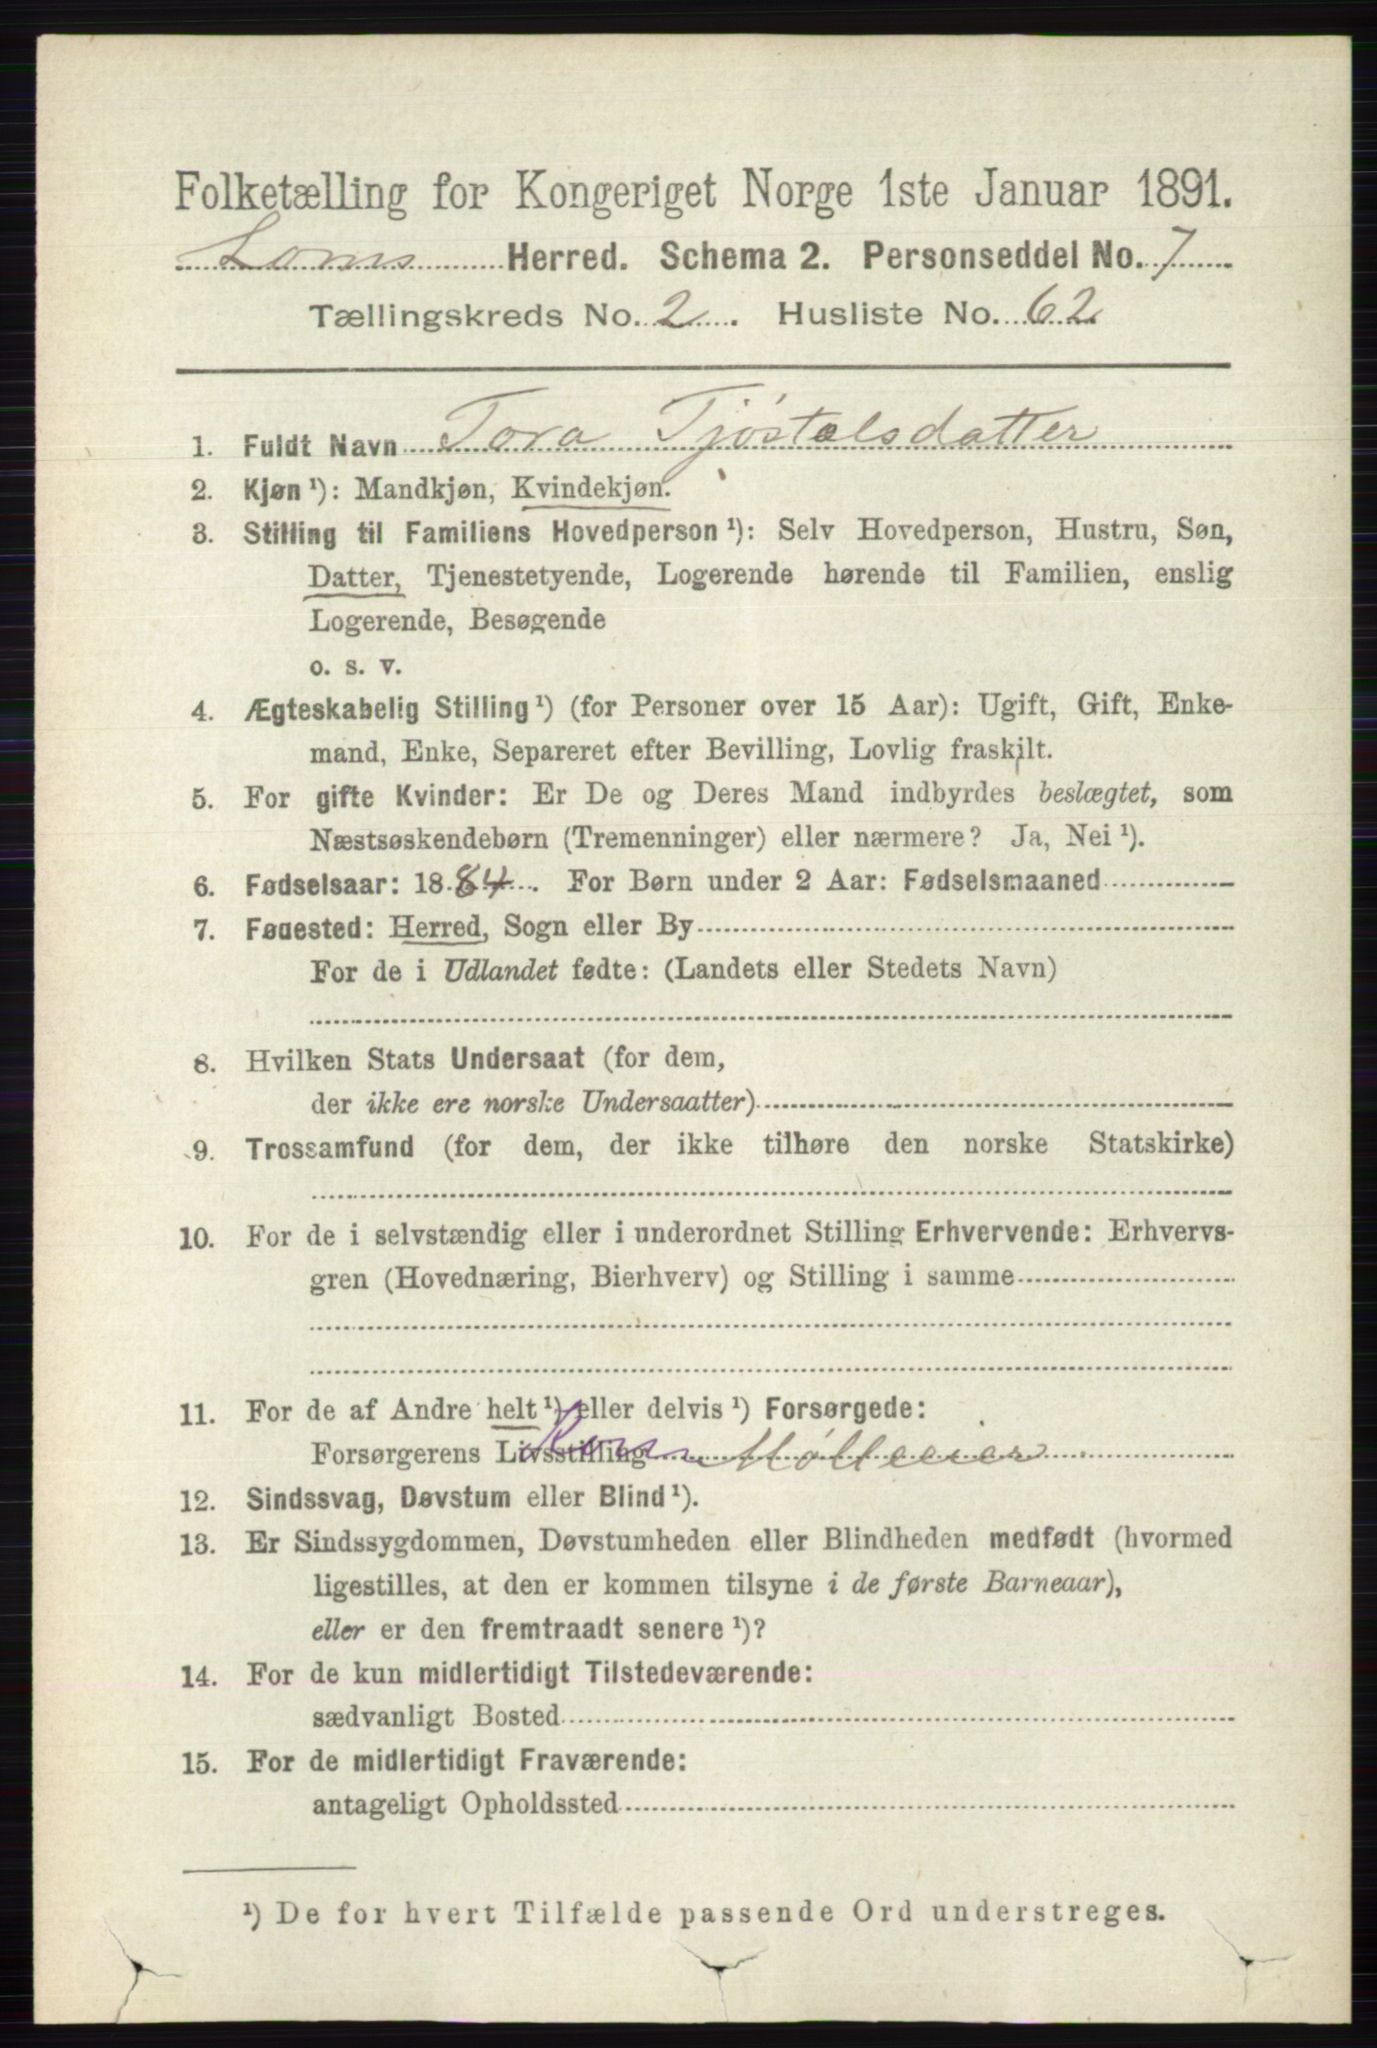 Folketælling for Kongeriget Norge 1ste Januar 1891.
Loms Herred. Schema 2. Personseddel No. 7
Tællingskreds No. 2. Husliste No. 62
1. Fuldt Navn Tora Tjöstelsdatter
2. Kjøn ¹): Mandkjøn, Kvindekjøn.
3. Stilling til Familiens Hovedperson ¹): Selv Hovedperson, Hustru, Søn,
Datter, Tjenestetyende, Logerende hørende til Familien, enslig
Logerende, Besøgende
o. s. v.
4. Ægteskabelig Stilling ¹) (for Personer over 15 Aar): Ugift, Gift, Enke-
mand, Enke, Separeret efter Bevilling, Lovlig fraskilt.
5. For gifte Kvinder: Er De og Deres Mand indbyrdes beslægtet, som
Næstsøskendebørn (Tremenninger) eller nærmere? Ja, Nei ¹).
6. Fødselsaar: 1884. For Børn under 2 Aar: Fødselsmaaned
7. Fødested: Herred, Sogn eller By
For de i Udlandet fødte: (Landets eller Stedets Navn)
8. Hvilken Stats Undersaat (for dem,
der ikke ere norske Undersaatter)
9. Trossamfund (for dem, der ikke tilhøre den norske Statskirke)
10. For de i selvstændig eller i underordnet Stilling Erhvervende: Erhvervs-
gren (Hovednæring, Bierhverv) og Stilling i samme
11. For de af Andre helt ¹) eller delvis ¹) Forsørgede:
Forsørgerens Livsstilling
12. Sindssvag, Døvstum eller Blind ¹).
13. Er Sindssygdommen, Døvstumheden eller Blindheden medfødt (hvormed
ligestilles, at den er kommen tilsyne i de første Barneaar),
eller er den fremtraadt senere ¹)?
14. For de kun midlertidigt Tilstedeværende:
sædvanligt Bosted
15. For de midlertidigt Fraværende:
antageligt Opholdssted
¹) De for hvert Tilfælde passende Ord understreges.